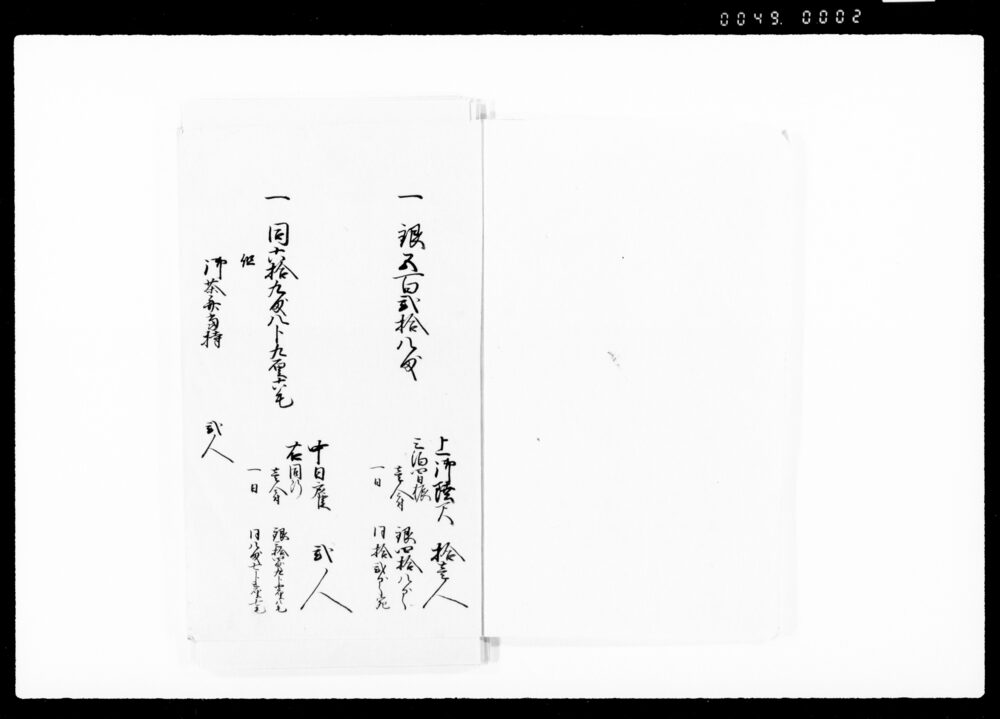 0049. 0002
一 銀五百弐拾八匁
上御陸尺 拾壱人
三泊四日振
壱人分 銀四拾八匁ツヽ
一日 同拾弐匁ツヽ宛
一 同六拾九匁八分九厘六毛
中日雇 弐人
右同断
壱人分
一日
但
御茶弁当持 弐人